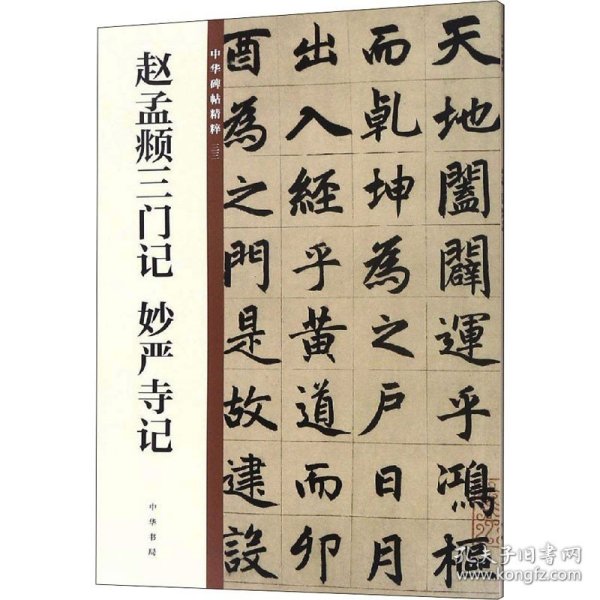 天地闔闢運乎鴻樞
而乹坤為之戶日月
出入經乎黃道而卯
酉為之門是故建設
中华碑帖精粹 三三
赵孟𫖯三门记 妙严寺记
中华书局
孔夫子旧书网
www.kongfz.com